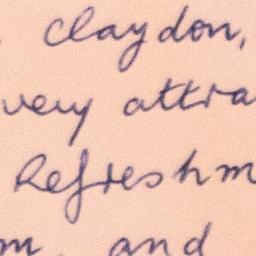 Claydon,
very attra
Refreshm
m. and